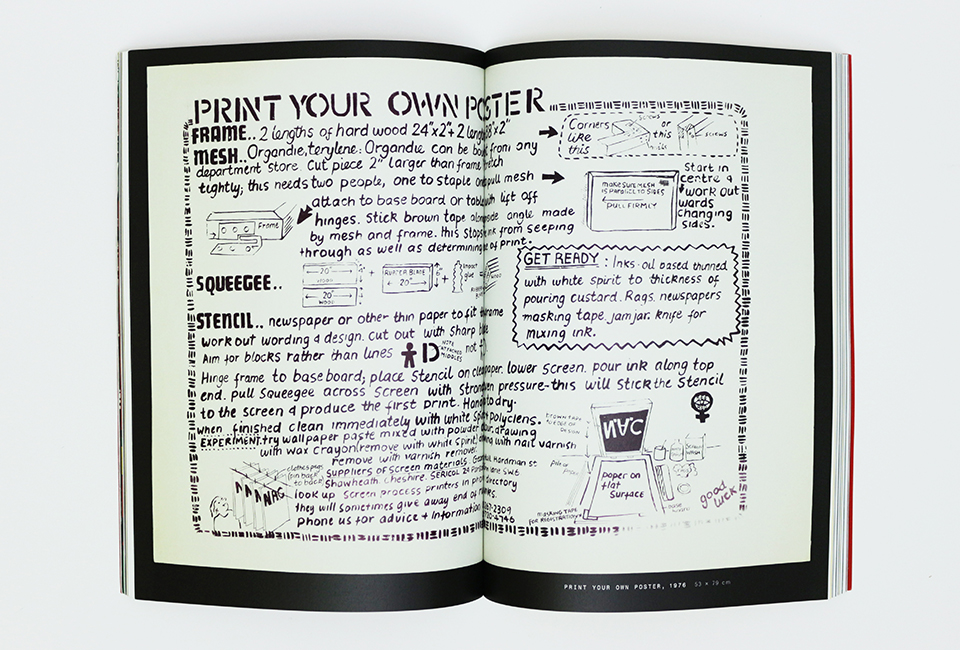 PRINT YOUR OWN POSTER
FRAME.. 2 lengths of hard wood 24"x2"+ 2 lengths "x2"
MESH.. Organdie, terylene: Organdie can be from any
department store. Cut piece 2" larger than frame
tightly; this needs two people, one to staple one pull mesh
attach to base board or table with lift off
hinges. Stick brown tape along side angle made
by mesh and frame. this stops ink from seeping
through as well as determining of print.
Frame
Corners
like
this
screws
or
this
screws
MAKE SURE MESH
IS PARALLEL TO SIDES
PULL FIRMLY
Start in
centre &
work out
wards
changing
sides.
SQUEEGEE..
20"
WOOD
20"
WOOD
4"
+
RUBBER BLADE
20"
6"
+
glue
GET READY : Inks. oil based thinned
with white spirit to thickness of
pouring custard. Rags. newspapers
masking tape. jam jar. knife for
mixing ink.
STENCIL.. newspaper or other thin paper to fit frame
work out wording & design. cut out with sharp
Aim for blocks rather than lines
NOTE
ATTACHED
MIDDLES
not
Hinge frame to base board; place stencil on paper. lower screen. pour ink along top
end. pull squeegee across screen with strong even pressure-this will stick the stencil
to the screen & produce the first print. Hang to dry.
when finished clean immediately with white polyclens.
EXPERIMENT. try wallpaper paste mixed with powder drawing
with wax crayon (remove with white spirit) with nail varnish
remove with varnish remover
Suppliers of screen materials. Hardman st.
Shawheath. Cheshire. SERICOL 24 SW6
look up screen process printers in directory
they will sometimes give away end of
Phone us for advice + information
2309
4746
clothes pegs
NAG
NAC
BROWN TAPE
TO EDGE OF
DESIGN
paper on
flat
surface
MASKING TAPE
FOR REGISTRATION
good
luck
PRINT YOUR OWN POSTER, 1976 53 x 79 cm